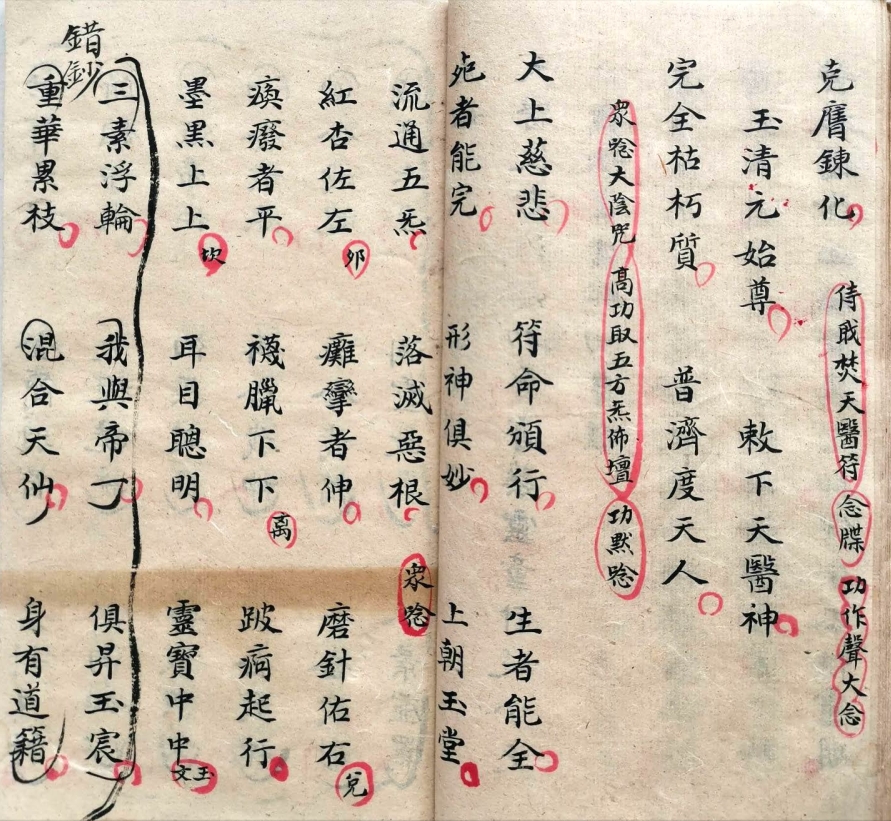 克膺鍊化 侍戢焚天醫符 念牒 功作聲大念
玉清元始尊 敕下天醫神
完全枯朽質 普濟度天人
眾唸大陰咒 高功取五方炁佈壇 功默唸
大上慈悲 符命頒行 生者能全
死者能完 形神俱妙 上朝玉堂
流通五炁 落滅惡根 眾唸
紅杏佐左 夘 癱攣者伸 磨針佑右 兌
瘓癈者平 襪臘下下 离 跛病起行
墨黑上上 坎 耳目聰明 靈寶中中 玉文
三素浮輪 我與帝丁 俱昇玉宸
錯鈔
重華累枝 混合天仙 身有道籍